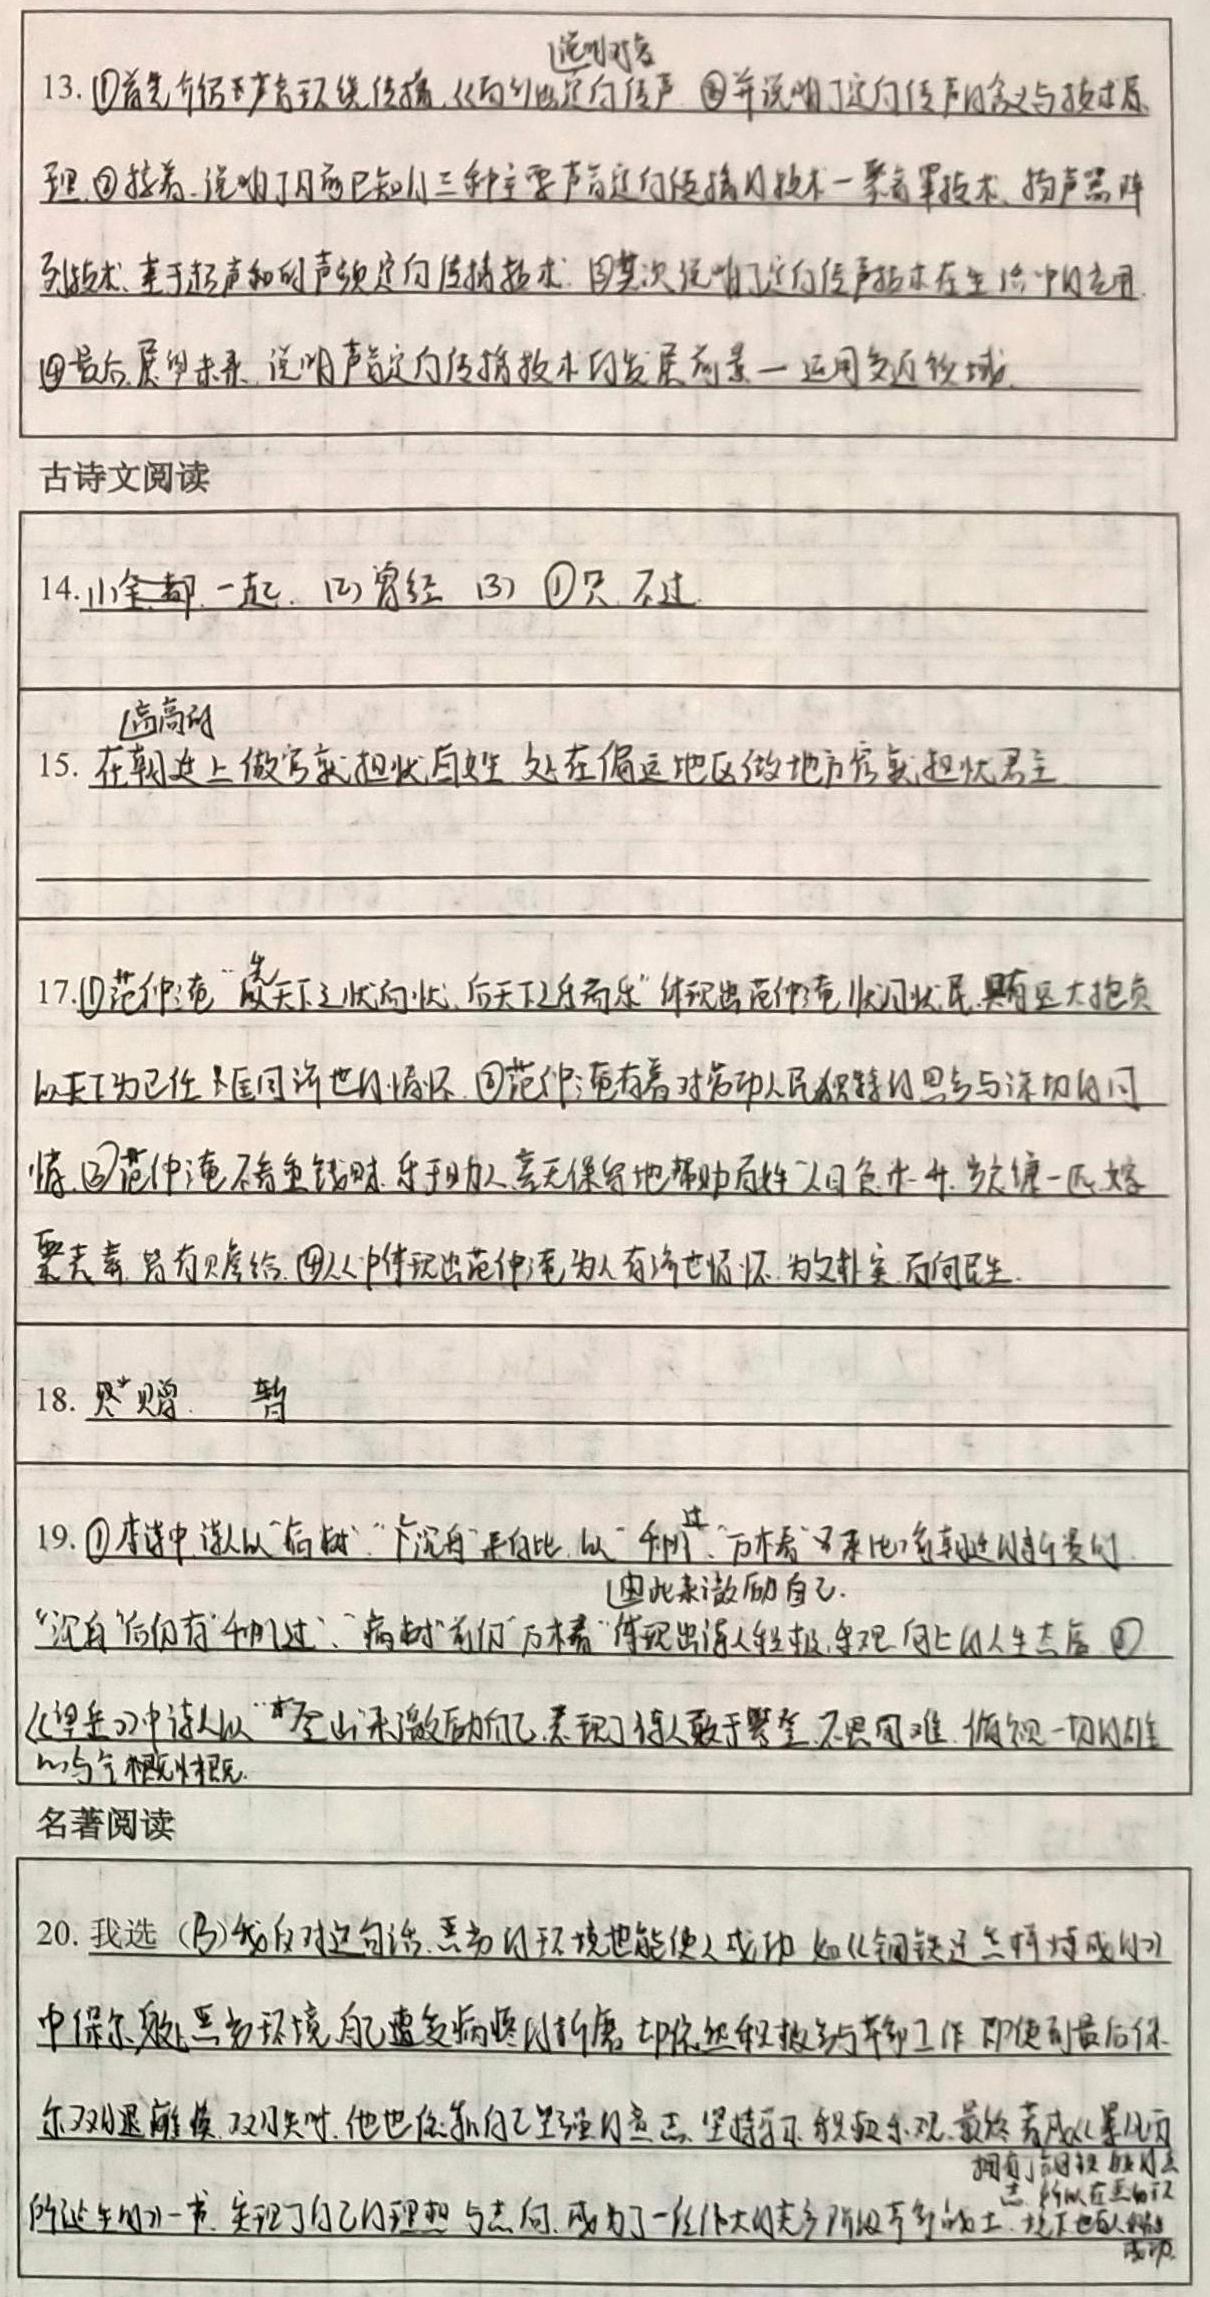 说明对象
13. ①首先介绍了声音环绕传播,从而引出定向传声 ②并说明了定向传声的含义与技术原
理,②接着,说明了目前已知的三种主要声音定向传播的技术一聚音罩技术、扬声器阵
列技术、基于超声和的声频定向传播技术. ③其次说明了定向传声技术在生活中的应用.
④最后,展望未来,说明声音定向传播技术的发展前景一运用多近领域.
古诗文阅读
14. (1)全都 一起. (2)曾经 (3) ①只 不过.
高高的
15. 在朝廷上做官就担忧百姓 处在偏远地区做地方官就担忧君主
先
17.①范仲淹“天下之忧而忧,后天下之乐而乐”体现出范仲淹忧国忧民,具有远大抱负
以天下为己任 匡国济世的情怀. ②范仲淹有着对劳动人民独特的思与深切的同
情.③范仲淹不看重钱财,乐于助人,毫无保留地帮助百姓“人日食米一升,岁衣缣一匹,嫁
娶丧葬,皆有赡给.④从中体现出范仲淹为人有济世情怀,为文朴实,面向民生.
18. 赠 暂
过
19. ①本诗中,诗人以“病树”、“沉舟”来自比,以“千帆”、“万木春”来比喻朝廷的新贵们.
由此来激励自己.
“沉舟”后仍有“千帆过”、“病树”前仍“万木春”体现出诗人积极,乐观,向上的人生态度 ②
《望岳》中诗人以“登山”来激励自己,表现了诗人敢于攀登,不畏困难,俯视一切的雄
心与气概.
名著阅读
20. 我选(B)我反对这句话,恶劣的环境也能使人成功 如《钢铁是怎样炼成的》
中保尔身处恶劣环境,自己遭受病疼的折磨,却依然积极参与革命工作,即使到最后保
尔双腿瘫痪,双目失明,他也依靠自己坚强的意志,坚持学习,积极乐观,最终著成《暴风雨
拥有了钢铁般的意
志,所以在恶劣环
所诞生的》一书,实现了自己的理想与志向,成为了一位伟大的无产阶级革命战士.境下也有人能够
成功.